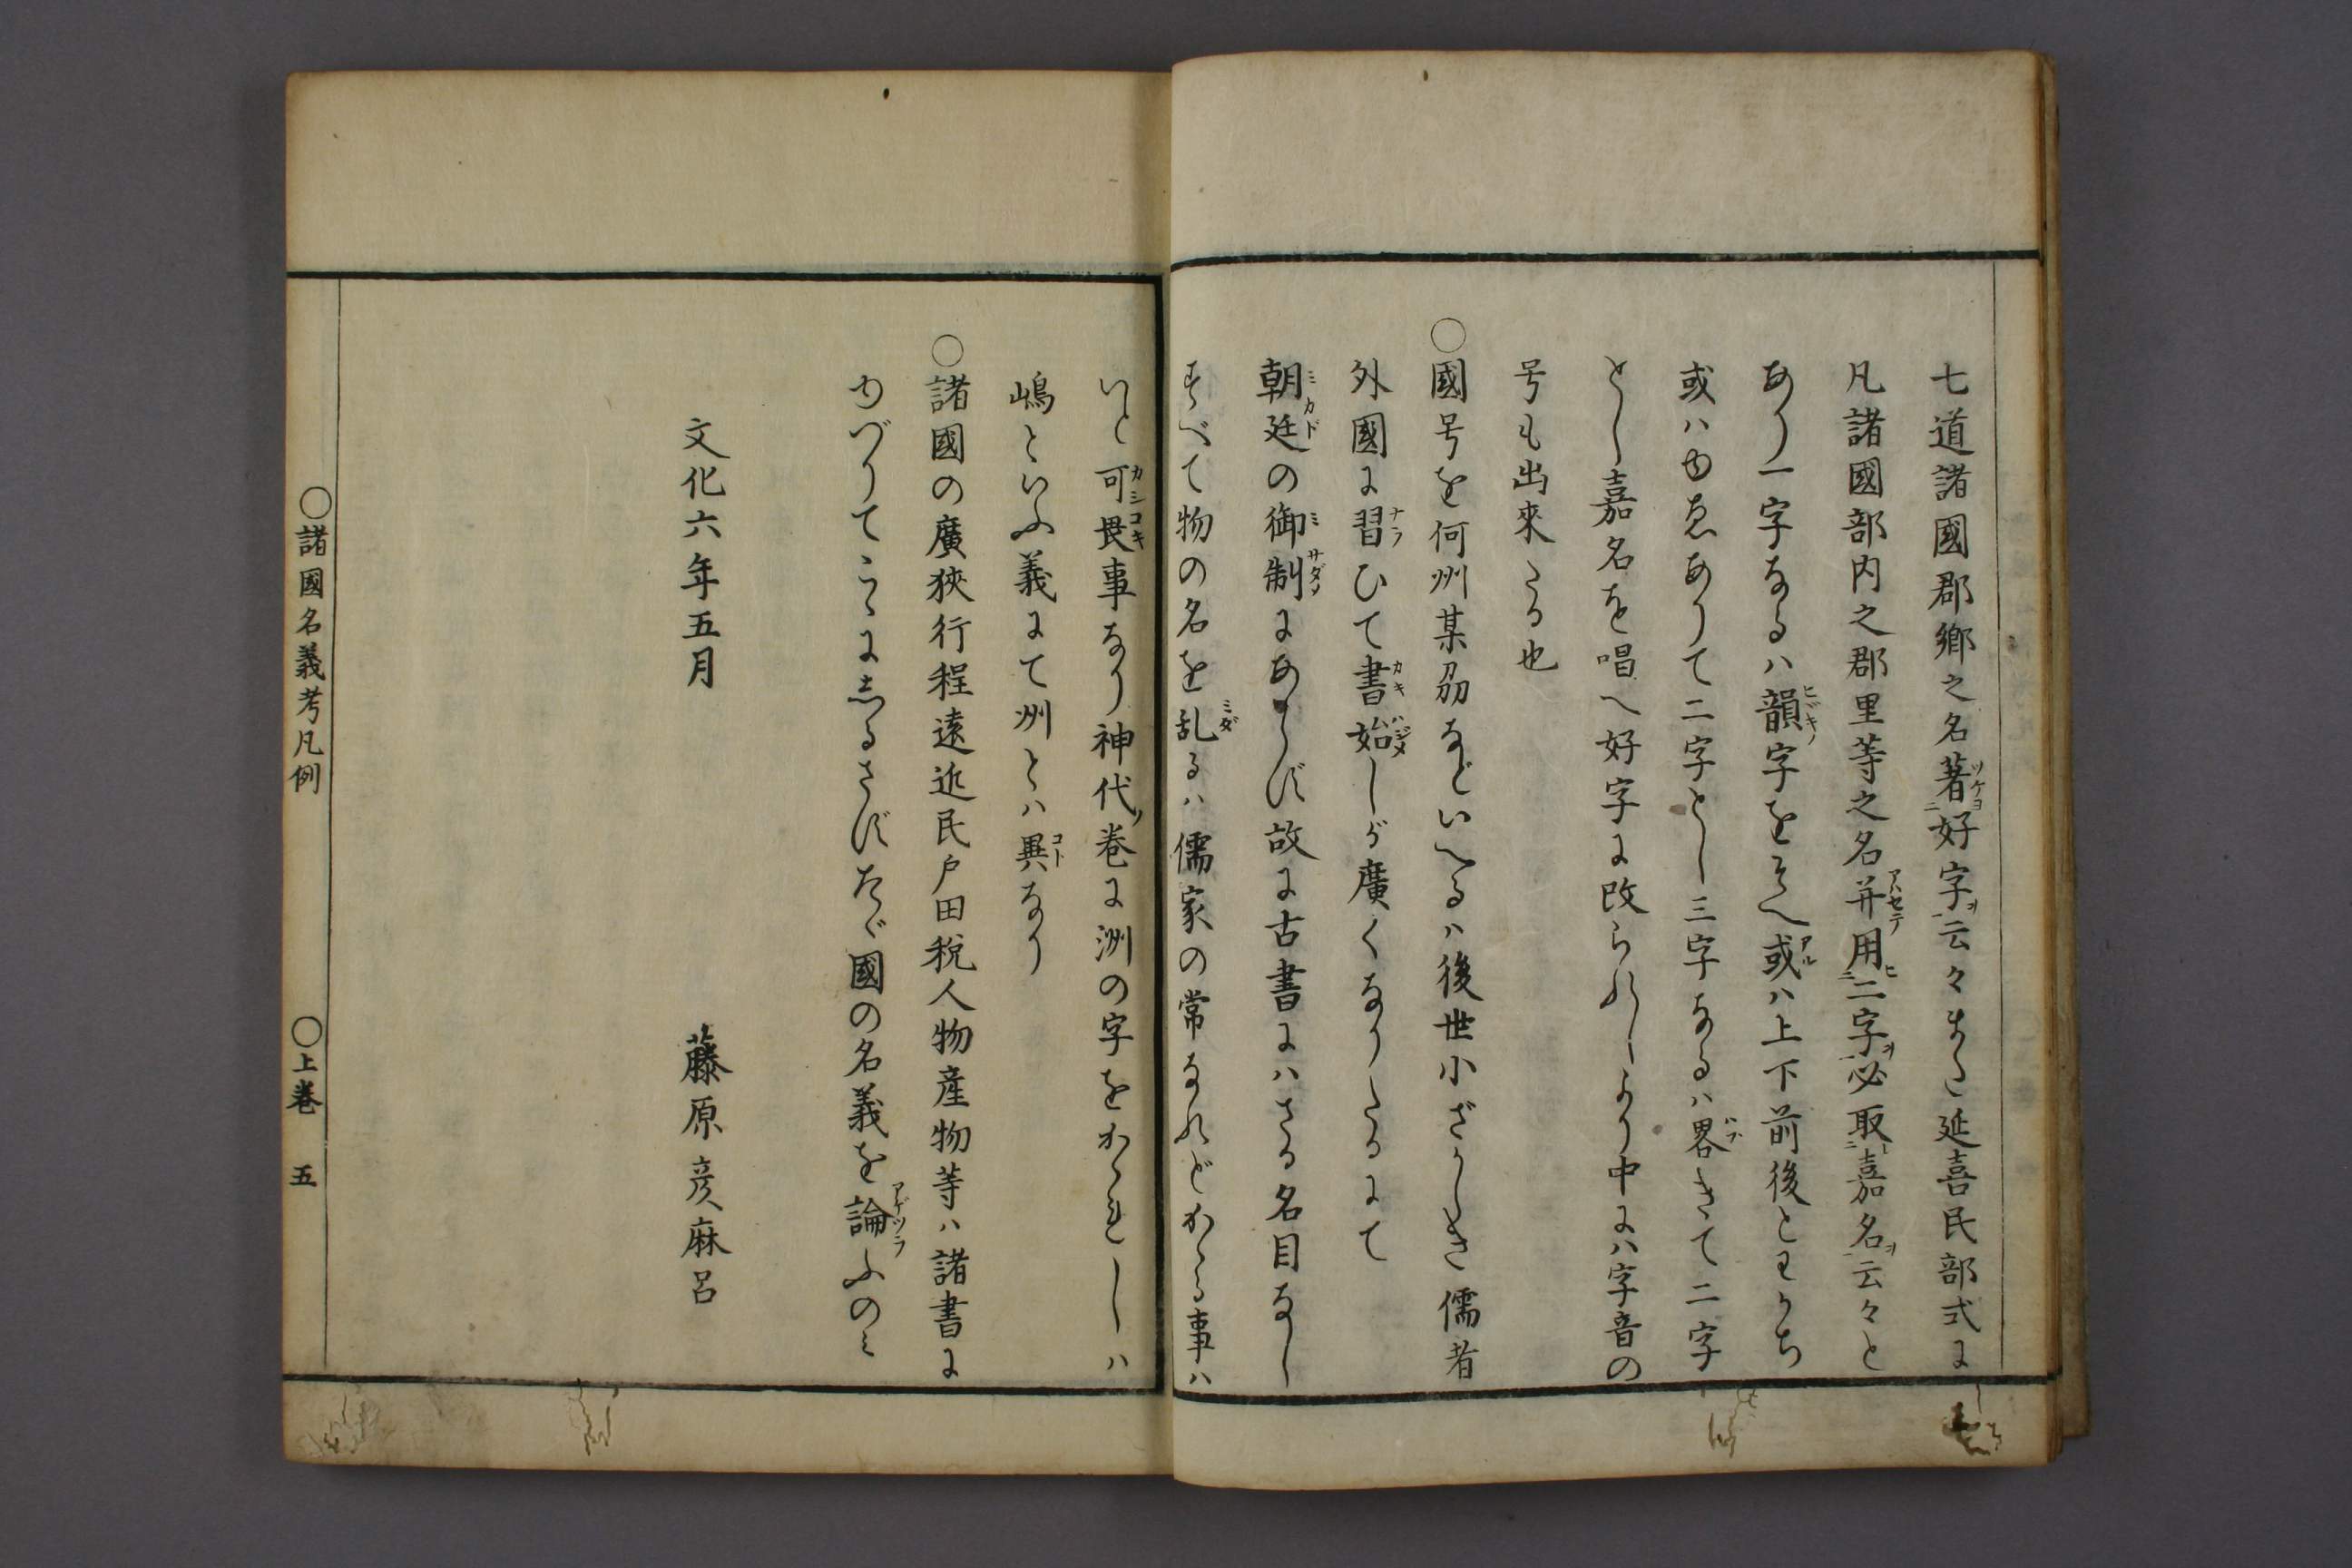 七道諸國郡郷之名著好字云々また延喜民部式に
凡諸國部内之郡里等之名并用二字必取嘉名云々と
あり一字なるハ韻字をそへ或ハ上下前後とわかち
或ハゆゑありて二字とし三字なるハ畧きて二字
とし嘉名を唱へ好字に改られしより中にハ字音の
号も出來たる也
○國号を何州某刕などいへるハ後世小ざかしき儒者
外國に習ひて書始しが廣くなりたるにて
朝廷の御制にあらず故に古書にハさる名目なし
すべて物の名を乱るハ儒家の常なれどかゝる事ハ
いと可畏事なり神代ノ巻に洲の字をかゝれしハ
嶋といふ義にて州とハ異なり
○諸國の廣狹行程遠近民戸田税人物産物等ハ諸書に
ゆづりてこゝにしるさずたゞ國の名義を論ふのミ
文化六年五月
藤原彦麻呂
○諸國名義考凡例 ○上巻 五